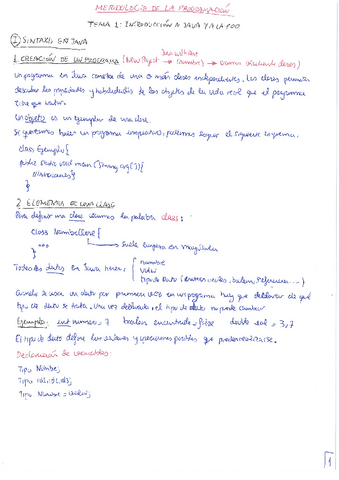 METODOLOGÍA DE LA PROGRAMACIÓN
TEMA 1: INTRODUCCIÓN A JAVA Y A LA POO
I) SINTAXIS EN JAVA
1. CREACIÓN DE UN PROGRAMA (New Project → (nombre) →
Un programa en Java consta de una o más clases independientes. Las clases permiten
describir las propiedades y habilidades de los objetos de la vida real que el programa
tiene que
Un objeto es un ejemplar de una clase.
Si queremos hacer un programa imperativo, podemos seguir el siguiente esquema:
class Ejemplo {
public static void main (String arg[]) {
//Instrucciones
}
}
2. ELEMENTOS DE UNA CLASE
Para definir una clase usamos la palabra class:
class NombreClase {
... Suele empezar en mayúscula
}
Todos los datos en Java tienen:
nombre
valor
tipo de dato (enteros, reales, boolean, referencia...)
Cuando se usa un dato por primera vez en un programa hay que declarar de qué
tipo de dato se trata. Una vez declarado el tipo de dato no puede cambiar
Ejemplo: int numero = 7 boolean encontrado = false double real = 3,7
El tipo de dato define los valores y operaciones posibles que pueden
Declaración de variables:
Tipo Nombre;
Tipo id1, id2, id3;
Tipo Nombre = valor;
1